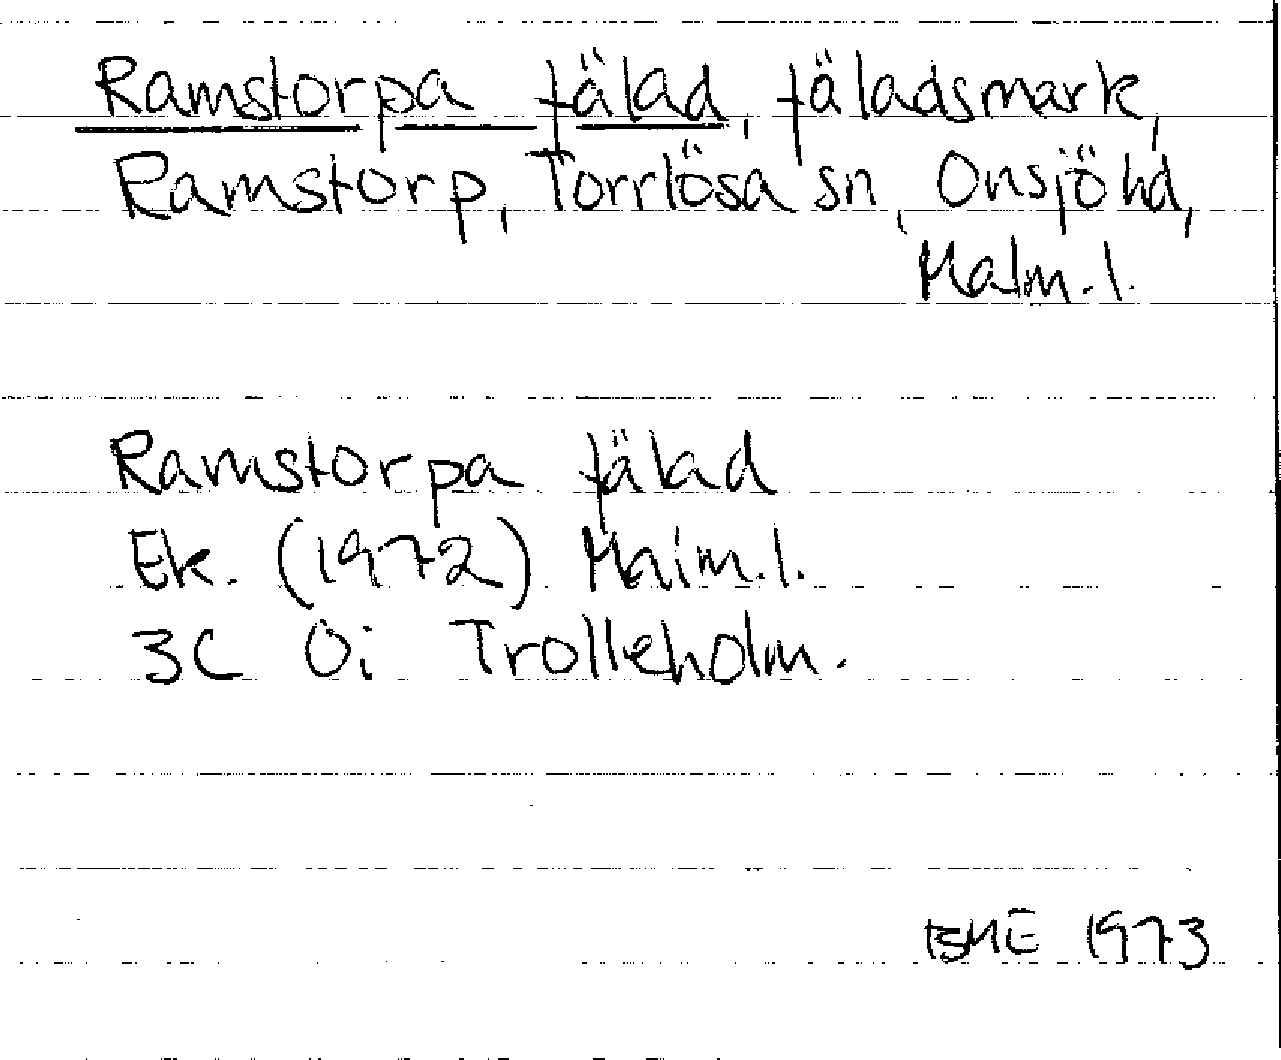 Ramstorpa fälad, fäladsmark,
Ramstorp, Torrlösa sn, Onsjö hd,
Malm.l.
Ramstorpa fälad
Ek. (1972) Malm.l.
3C 0i Trolleholm.
BME 1973